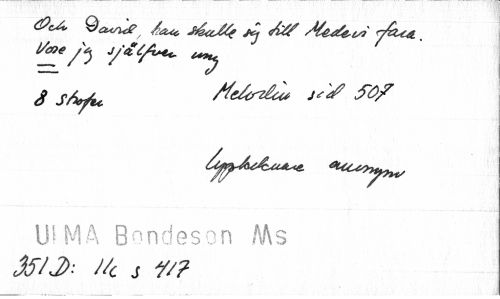 Och David, han skulle sig till Medevi fara.
Vore jag själfver ung
8 strofer
Melodin sid 507
Upptecknare anonym
ULMA Bondeson Ms
351 D: 11c s 417